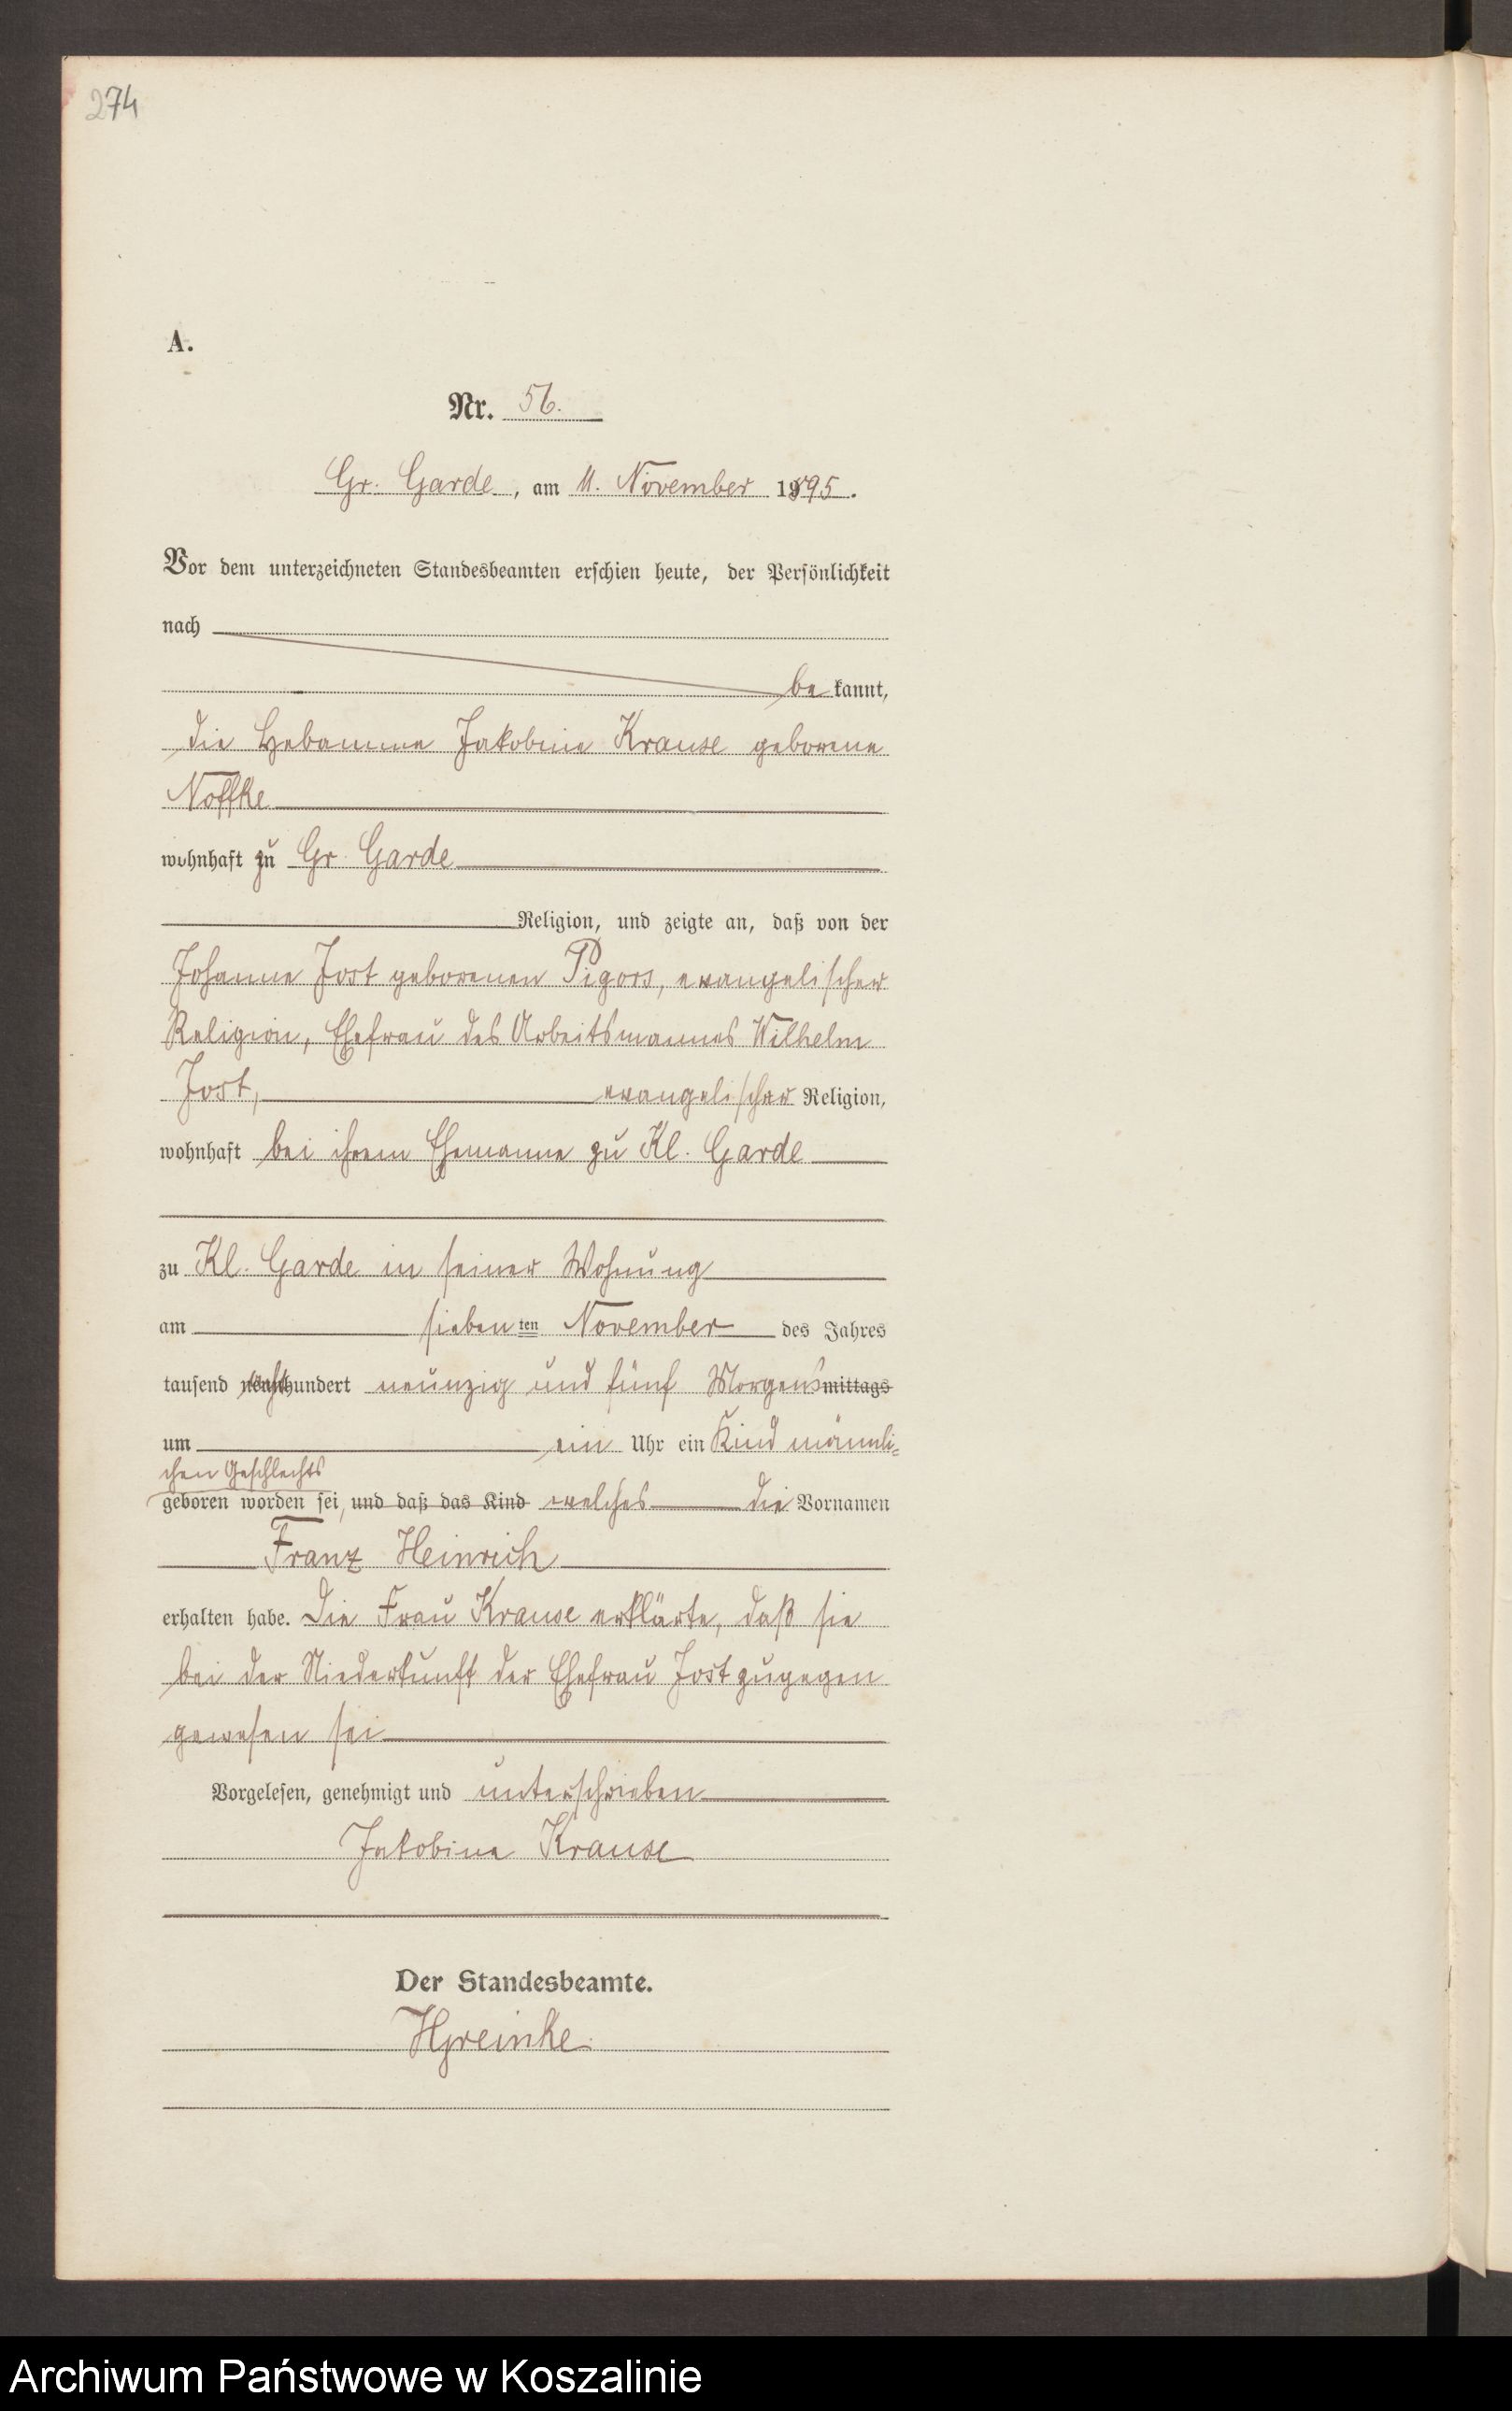 274
A.
Nr. 56.
Gr. Garde, am 11. November 1895.
Vor dem unterzeichneten Standesbeamten erschien heute, der Persönlichkeit
nach
be kannt,
die Hebamme Jakobine Krause geborene
Noffke
wohnhaft zu Gr. Garde
Religion, und zeigte an, daß von der
Johanne Jost geborenen Pigors, evangelischer
Religion, Ehefrau des Arbeitsmannes Wilhelm
Jost, evangelischer Religion,
wohnhaft bei ihrem Ehemanne zu Kl. Garde
zu Kl. Garde in seiner Wohnung
am siebenten November des Jahres
tausend achthundert neunzig und fünf Morgens mittags
um ein Uhr ein Kind männli-
chen Geschlechts
geboren worden sei, und daß das Kind welches die Vornamen
Franz Heinrich
erhalten habe. Die Frau Krause erklärte, daß sie
bei der Niederkunft der Ehefrau Jost zugegen
gewesen sei
Vorgelesen, genehmigt und unterschrieben
Jakobine Krause
Der Standesbeamte.
Archiwum Państwowe w Koszalinie